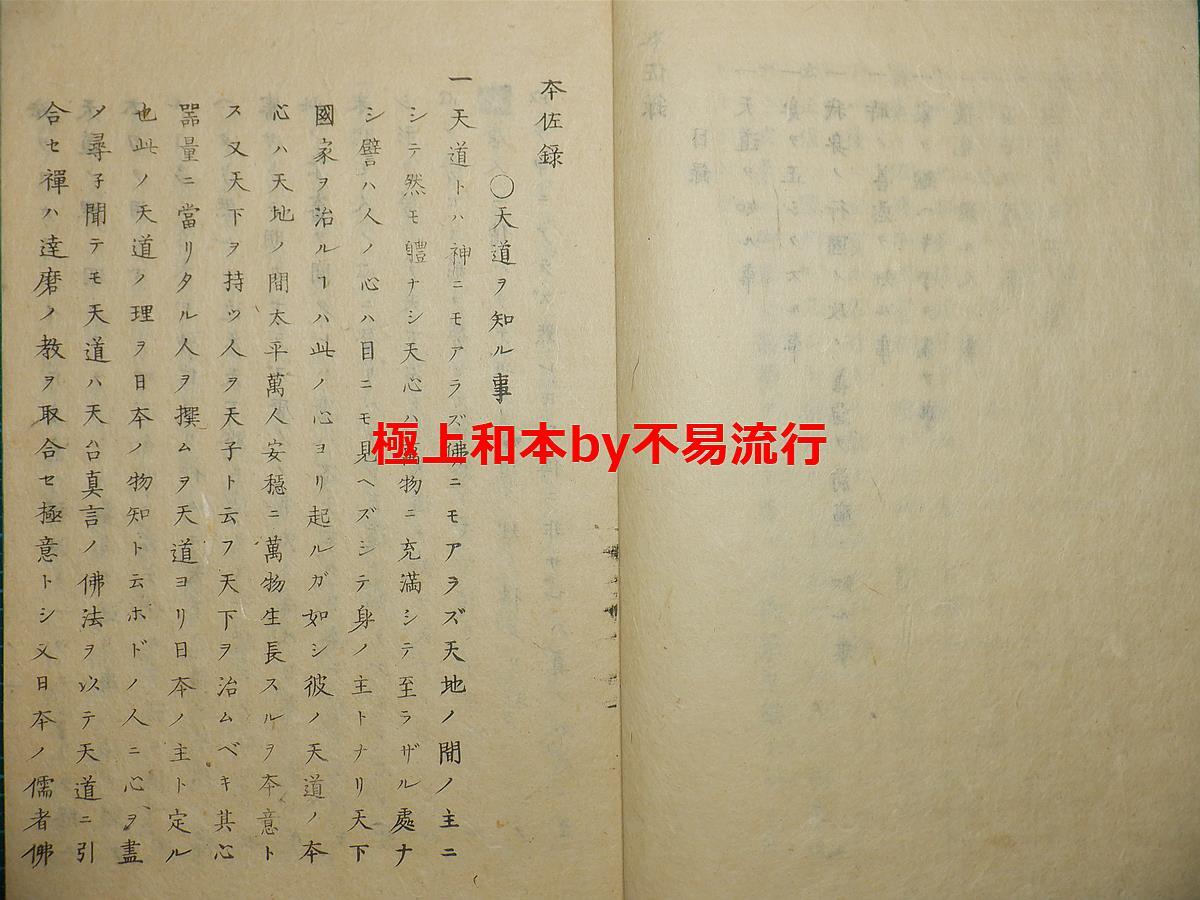 本佐録
〇天道ヲ知ル事
一 天道トハ神ニモアラズ佛ニモアラズ天地ノ間ノ主ニ
シテ然モ軆ナシ天心ハ萬物ニ充満シテ至ラザル處ナ
シ譬ハ人ノ心ハ目ニモ見ヘズシテ身ノ主トナリ天下
國家ヲ治ルヿハ此ノ心ヨリ起ルガ如シ彼ノ天道ノ本
心ハ天地ノ間太平萬人安穏ニ萬物生長スルヲ本意ト
ス又天下ヲ持ツ人ヲ天子ト云フ天下ヲ治ムベキ其心
器量ニ當リタル人ヲ撰ムヲ天道ヨリ日本ノ主ト定ル
也此ノ天道ノ理ヲ日本ノ物知ト云ホドノ人ニ心ヲ盡
〆尋子聞テモ天道ハ天台真言ノ佛法ヲ以テ天道ニ引
合セ禪ハ達磨ノ教ヲ取合セ極意トシ又日本ノ儒者佛
極上和本by不易流行